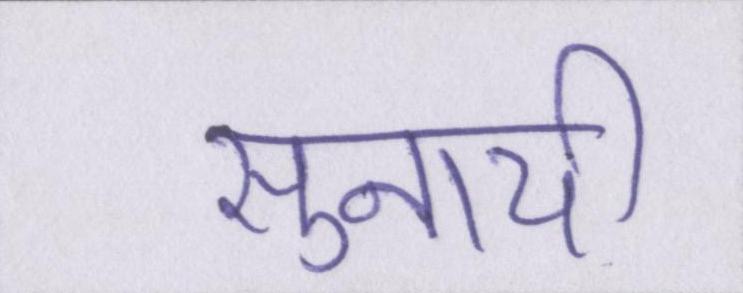 सुनायी